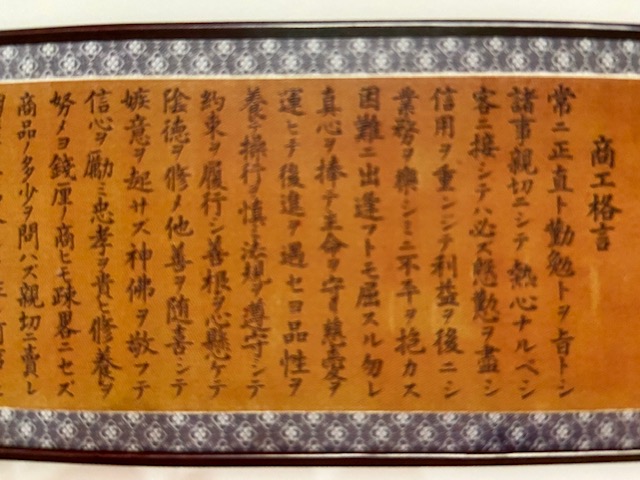 商工格言
常ニ正直ト勤勉トヲ旨トシ
諸事親切ニシテ熱心ナルベシ
客ニ接シテハ必ズ慇懃ヲ盡シ
信用ヲ重ンシテ利益ヲ後ニシ
業務ヲ樂シミニ不平ヲ抱カス
困難ニ出逢フトモ屈スル勿レ
真心ヲ捧テ主命ヲ守リ慈愛ヲ
運ヒテ後進ヲ遇セヨ品性ヲ
養テ操行ヲ慎ミ法規ヲ遵守シテ
約束ヲ履行シ善根ヲ心懸ケテ
陰徳ヲ修メ他善ヲ随喜シテ
嫉意ヲ起サス神佛ヲ敬フテ
信心ヲ勵ミ忠孝ヲ貴ヒ修養ヲ
努メヨ錢厘ノ商ヒモ疎畧ニセズ
商品ノ多少ヲ問ハズ親切ニ賣レ